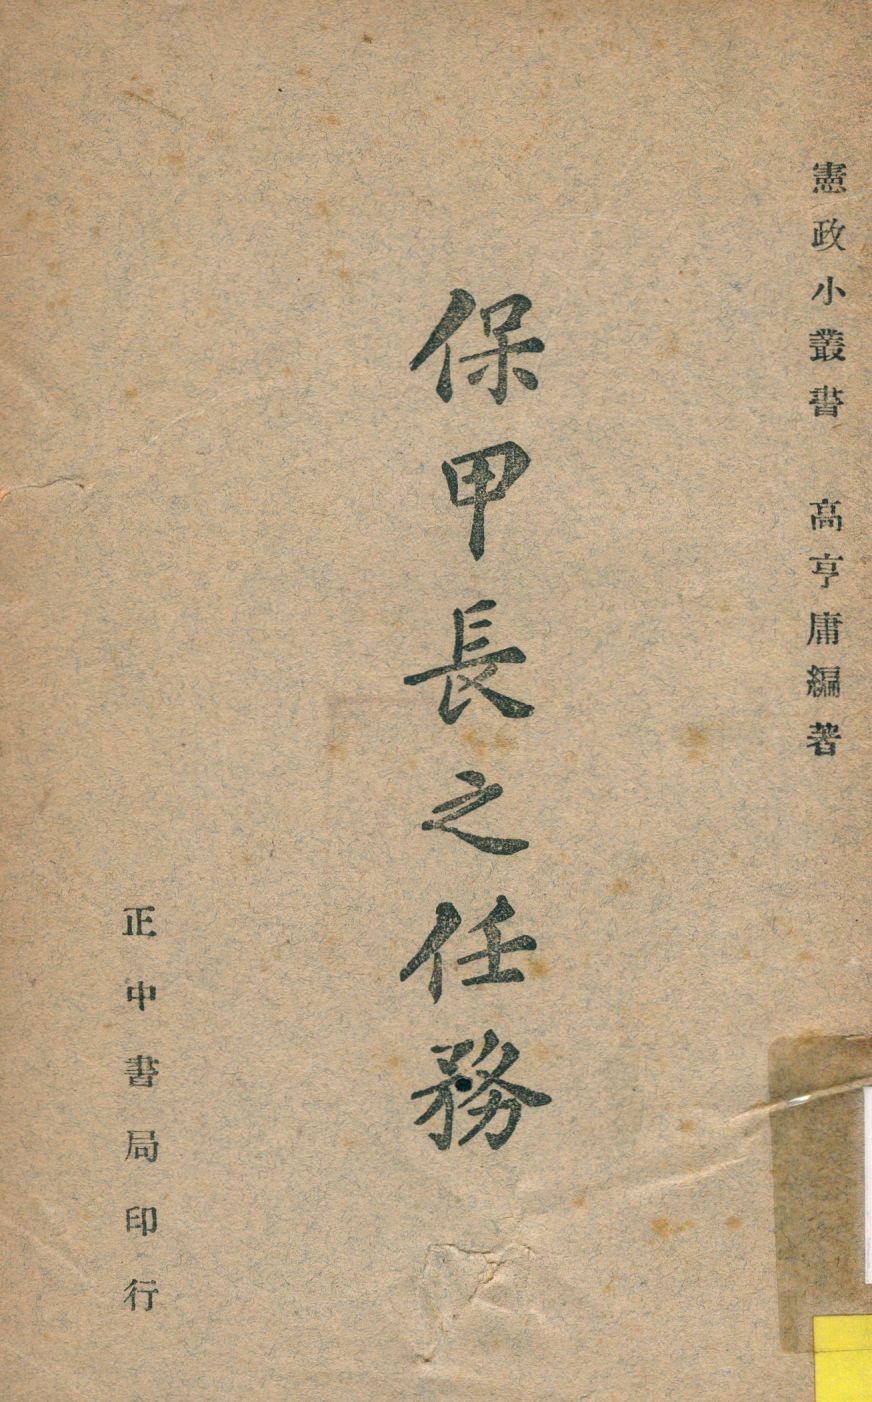 憲政小叢書 高亨庸編著
保甲長之任務
正中書局印行